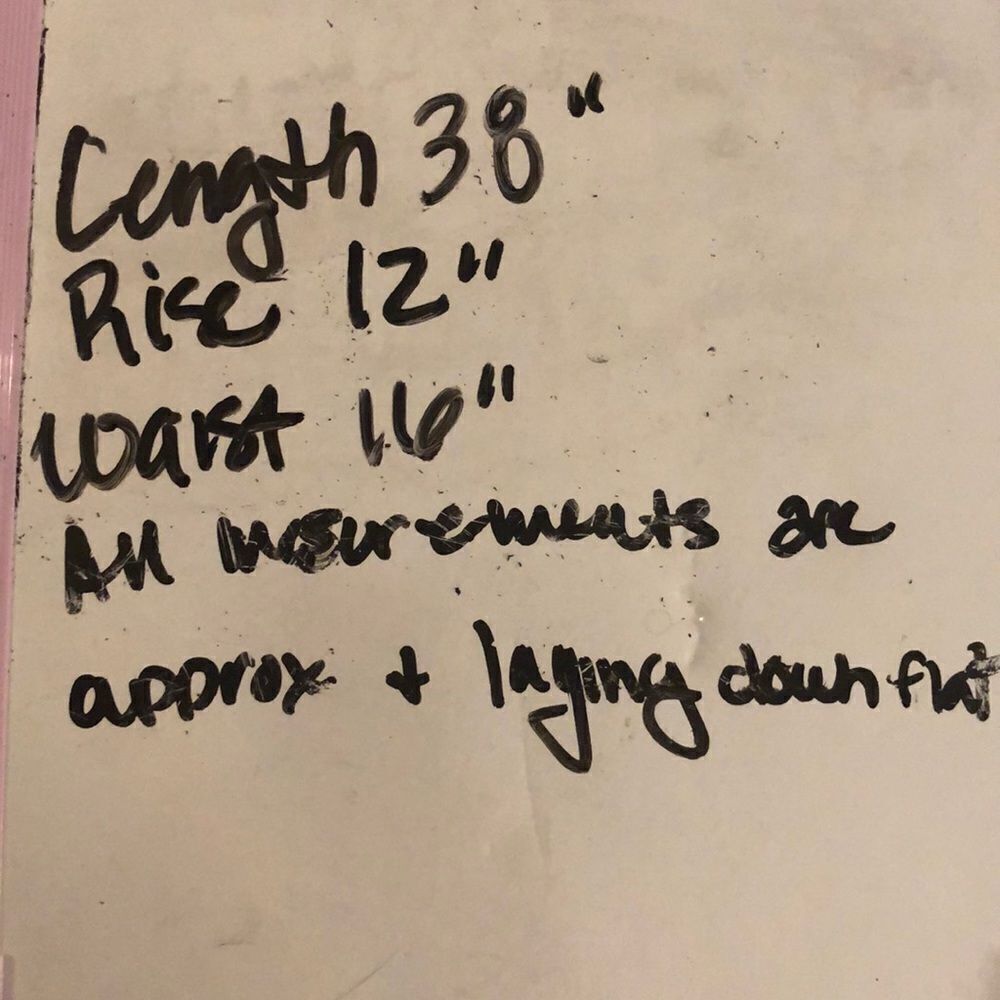 Length 38"
Rise 12"
Waist 16"
All mesurements are
approx + laying down flat